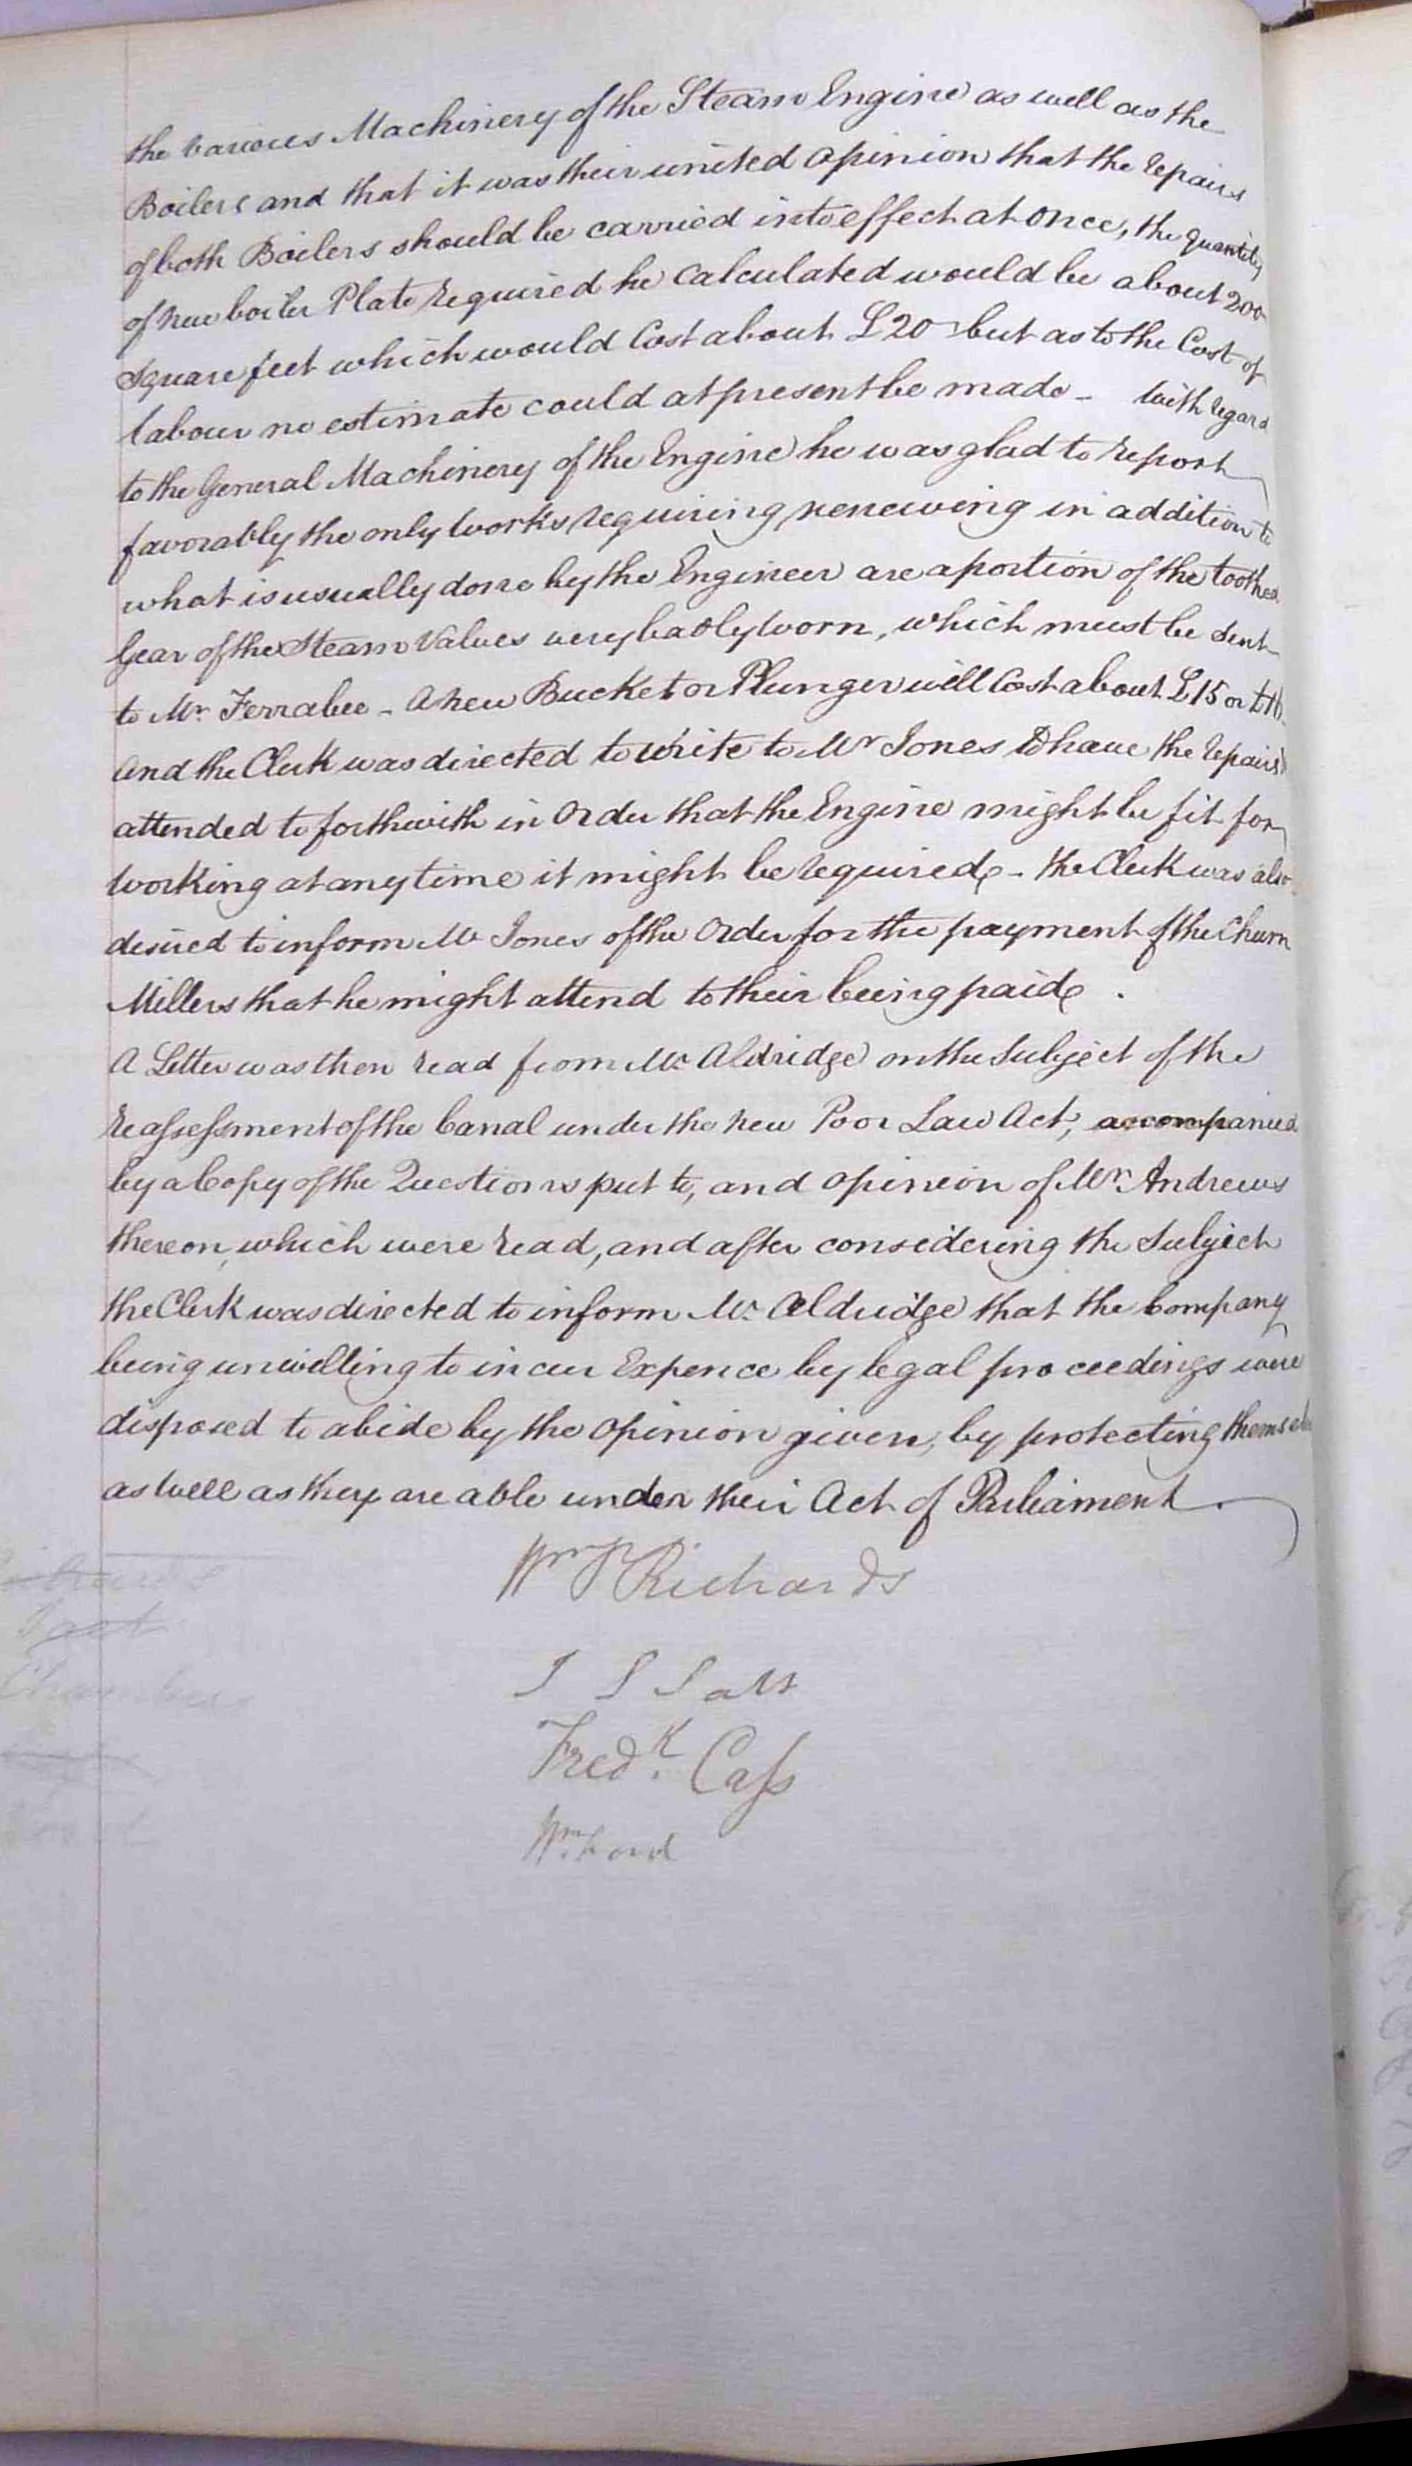 the various Machinery of the Steam Engine as well as the
Boilers and that it was their united Opinion that the repairs
of both Boilers should be carried into effect at once, the quantity
of new boiler Plate required he Calculated would be about 200
Square feet which would Cost about £20 but as to the Cost of
labour no estimate could at present be made - With regard
to the General Machinery of the Engine he was glad to report
favorably the only works requiring renewing in addition to
what is usually done by the Engineer are a portion of the toothed
Gear of the Steam Valves very badly worn, which must be sent
to Mr Ferrabee - A new Bucket or Plunger will Cost about £15 or £16
And the Clerk was directed to write to Mr Jones to have the repairs
attended to forthwith in Order that the Engine might be fit for
working at any time it might be required - the Clerk was also
desired to inform Mr Jones of the Order for the payment of the Churn
Millers that he might attend to their being paid .
A Letter was then read from Mr Aldridge on the Subject of the
reassessment of the Canal under the new Poor Law Act, accompanied
by a Copy of the Questions put to, and opinion of Mr Andrews
thereon, which were read, and after considering the Subject
the Clerk was directed to inform Mr Aldridge that the Company
being unwilling to incur Expence by legal proceedings were
disposed to abide by the Opinion given, by protecting themselves
as well as they are able under their Act of Parliament.
Wm P Richards
J S Salt
Fredk. Cass
Wm. Ford
Chambers